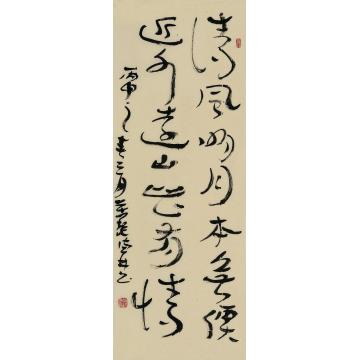 清風明月本無價
近水遠山皆有情
丙申之春三月